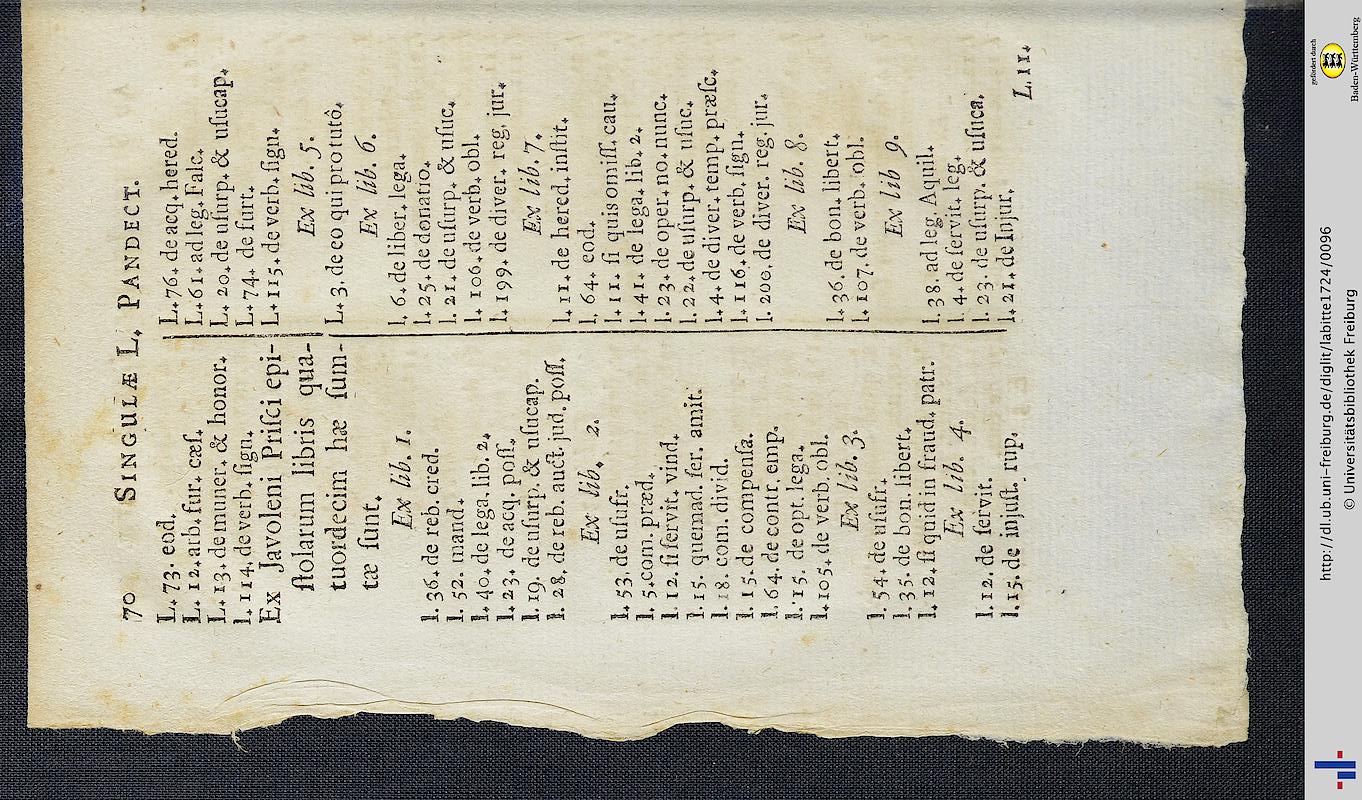 70 SINGULÆ L. PANDECT.
L. 73. eod.
L. 12. arb. fur. cæſ.
L. 13. de muner. & honor.
L. 114. de verb. ſign.
Ex Javoleni Priſci epi-
ſtolarum libris qua-
tuordecim hæ ſum-
tæ ſunt.
Ex lib. 1.
l. 36. de reb. cred.
l. 52. mand.
l. 40. de lega. lib. 2.
l. 23. de acq. poſſ.
l. 19. de uſurp. & uſucap.
l. 28. de reb. auct. jud. poſſ.
Ex lib. 2.
l. 53. de uſufr.
l. 5. com. præd.
l. 12. ſi ſervit. vind.
l. 15. quemad. ſer. amit.
l. 18. com. divid.
l. 15. de compenſa.
l. 64. de contr. emp.
l. 15. de opt. lega.
l. 105. de verb. obl.
Ex lib. 3.
l. 54. de uſufr.
l. 35. de bon. libert.
l. 12. ſi quid in fraud. patr.
Ex lib. 4.
l. 12. de ſervit.
l. 15. de injuſt. rup.
L. 76. de acq. hered.
L. 61. ad leg. Falc.
L. 20. de uſurp. & uſucap.
L. 74. de furt.
L. 115. de verb. ſign.
Ex lib. 5.
L. 3. de eo qui pro tutô.
Ex lib. 6.
l. 6. de liber. lega.
l. 25. de donatio.
l. 21. de uſurp. & uſuc.
l. 106. de verb. obl.
l. 199. de diver. reg. jur.
Ex lib. 7.
l. 11. de hered. inſtit.
l. 64. eod.
l. 11. ſi quis omiſſ. cau.
l. 41. de lega. lib. 2.
l. 23. de oper. no. nunc.
l. 22. de uſurp. & uſuc.
l. 4. de diver. temp. præſc.
l. 116. de verb. ſign.
l. 200. de diver. reg. jur.
Ex lib. 8.
l. 36. de bon. libert.
l. 107. de verb. obl.
Ex lib 9.
l. 38. ad leg. Aquil.
l. 4. de ſervit. leg.
l. 23. de uſurp. & uſuca.
l. 21. de Injur.
L. 11.
http://dl.ub.uni-freiburg.de/diglit/labitte1724/0096
© Universitätsbibliothek Freiburg
gefördert durch
Baden-Württemberg